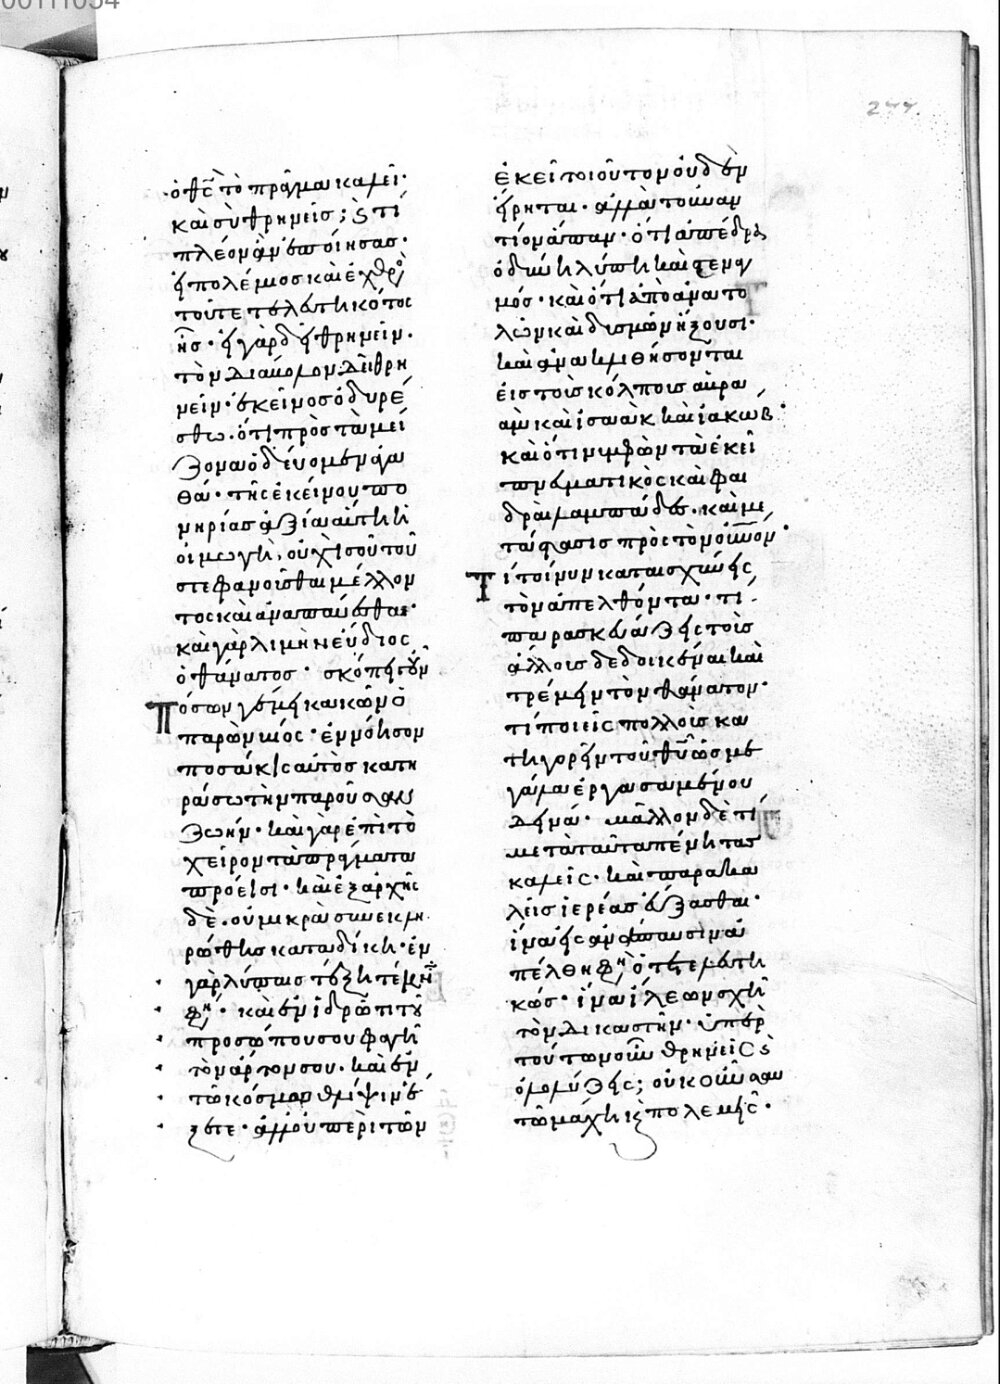 ὁ θς τὸ πρᾶγμα καλεῖ·
καὶ σὺ θρηνεῖς; ϗ τί
πλέον ἂν ἐποίησας·
εἰ πολέμιος καὶ ἐχθρὸς
τοῦ τετελευτηκότος
ἦς· εἰ γὰρ δεῖ θρηνεῖν·
τὸν διάβολον δεῖ θρη
νεῖν· ἐκεῖνος ὀδυρέ
σθω· ὅτι πρὸς τὰ μεί
ζονα ὁδεύομεν ἀγα
θά· τῆς ἐκείνου πο
νηρίας ἀξία αὕτη ἡ
οἰμωγὴ, οὐχὶ σοῦ τοῦ
στεφανοῦσθαι μέλλον
τος καὶ ἀναπαύεσθαι·
καὶ γὰρ λιμὴν εὔδιος
ὁ θάνατος· σκόπει γοῦν
Πόσων γέμει κακῶν ὁ
παρὼν βίος· ἐννόησον
ποσάκις αὐτὸς κατη
ράσω τὴν παροῦσαν
ζωήν· καὶ γὰρ ἐπὶ τὸ
χεῖρον τὰ πράγματα
πρόεισι· καὶ ἐξ ἀρχῆς
δὲ· οὐ μικρᾷ συνεκλη
ρώθης καταδίκη· ἐν
γὰρ λύπαις τέξῃ τέκνα
φησί· καὶ ἐν ἱδρῶτι τοῦ
προσώπου σου φαγῇ
τὸν ἄρτον σου· καὶ ἐν
τῷ κόσμῳ θλίψιν ἕ
ξετε· ἀλλ' οὐ περὶ τῶν
ἐκεῖ τοιοῦτον οὐδὲν
εἴρηται· ἀλλὰ τοὐναν
τίον ἅπαν· ὅτι ἀπέδρα
ὀδύνη λύπη καὶ στεναγ
μός· καὶ ὅτι ἀπὸ ἀνατο
λῶν καὶ δυσμῶν ἥξουσι·
καὶ ἀνακλιθήσονται
εἰς τοὺς κόλποις ἀβρα
ὰμ καὶ ἰσαὰκ καὶ ἰακώβ·
καὶ ὅτι νυμφὼν τὰ ἐκεῖ
πνευματικὸς καὶ φαι
δραὶ λαμπάδες· καὶ με
τάστασις πρὸς τὸν οὐνον·
Τί τοίνυν καταισχύνεις
τὸν ἀπελθόντα· τί
παρασκευάζεις τοὺς
ἄλλους δεδοικέναι καὶ
τρέμειν τὸν θάνατον·
τί ποιεῖς πολλοὺς κα
τηγορεῖν τοῦ θυ ὡς με
γάλα ἐργασαμένου
δεινά· μᾶλλον δὲ τί
μετὰ ταῦτα πένητας
καλεῖς· καὶ παρακα
λεῖς ἱερέας εὔξασθαι·
ἵνα εἰς ἀνάπαυσιν ἀ
πέλθῃ φησὶ, ὁ τετελευτη
κώς· ἵνα ἵλεων σχῇ
τὸν δικαστήν· ὑπὲρ
τούτων οὖν θρηνεῖς ϗ
ὀλολύζεις; οὐκοῦν σαυ
τῷ μάχη ϗ πολεμεῖς·